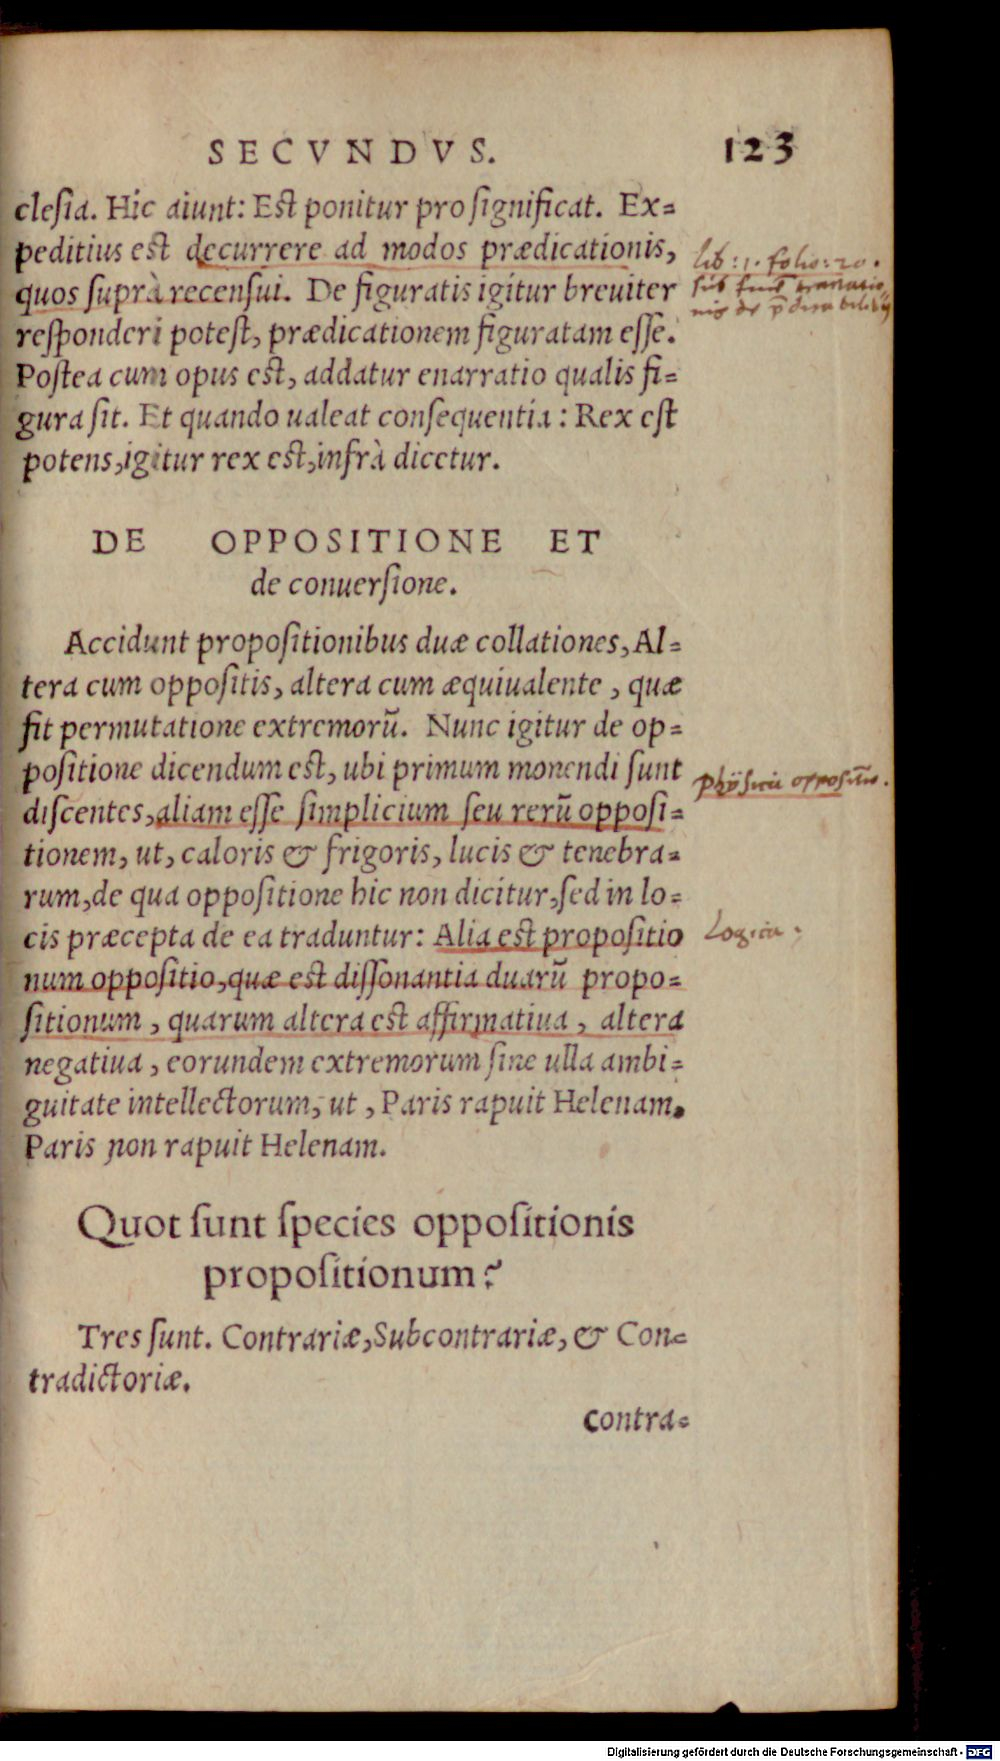 SECVNDVS. 123
cleſia. Hic aiunt: Est ponitur pro ſignificat. Ex=
peditius est decurrere ad modos prædicationis,
quos ſuprà recenſui. De figuratis igitur breuiter
reſponderi poteſt, prædicationem figuratam eſſe.
Poſtea cum opus est, addatur enarratio qualis fi=
gura ſit. Et quando ualeat conſequentia: Rex eſt
potens, igitur rex est, infrà dicetur.
lib: 1. folio: 20.
DE OPPOSITIONE ET
de conuerſione.
Accidunt propoſitionibus duæ collationes, Al=
tera cum oppoſitis, altera cum æquiualente, quæ
fit permutatione extremorũ. Nunc igitur de op=
poſitione dicendum est, ubi primum monendi ſunt
diſcentes, aliam eſſe ſimplicium ſeu rerũ oppoſi=
tionem, ut, caloris & frigoris, lucis & tenebra=
rum, de qua oppoſitione hic non dicitur, ſed in lo=
cis præcepta de ea traduntur: Alia est propoſitio
num oppoſitio, quæ est diſſonantia duarũ propo=
ſitionum, quarum altera est affirmatiua, altera
negatiua, eorundem extremorum ſine ulla ambi=
guitate intellectorum, ut, Paris rapuit Helenam.
Paris non rapuit Helenam.
Logica.
Quot ſunt ſpecies oppoſitionis
propoſitionum?
Tres ſunt. Contrariæ, Subcontrariæ, & Con=
tradictoriæ.
contra=
Digitalisierung gefördert durch die Deutsche Forschungsgemeinschaft - DFG